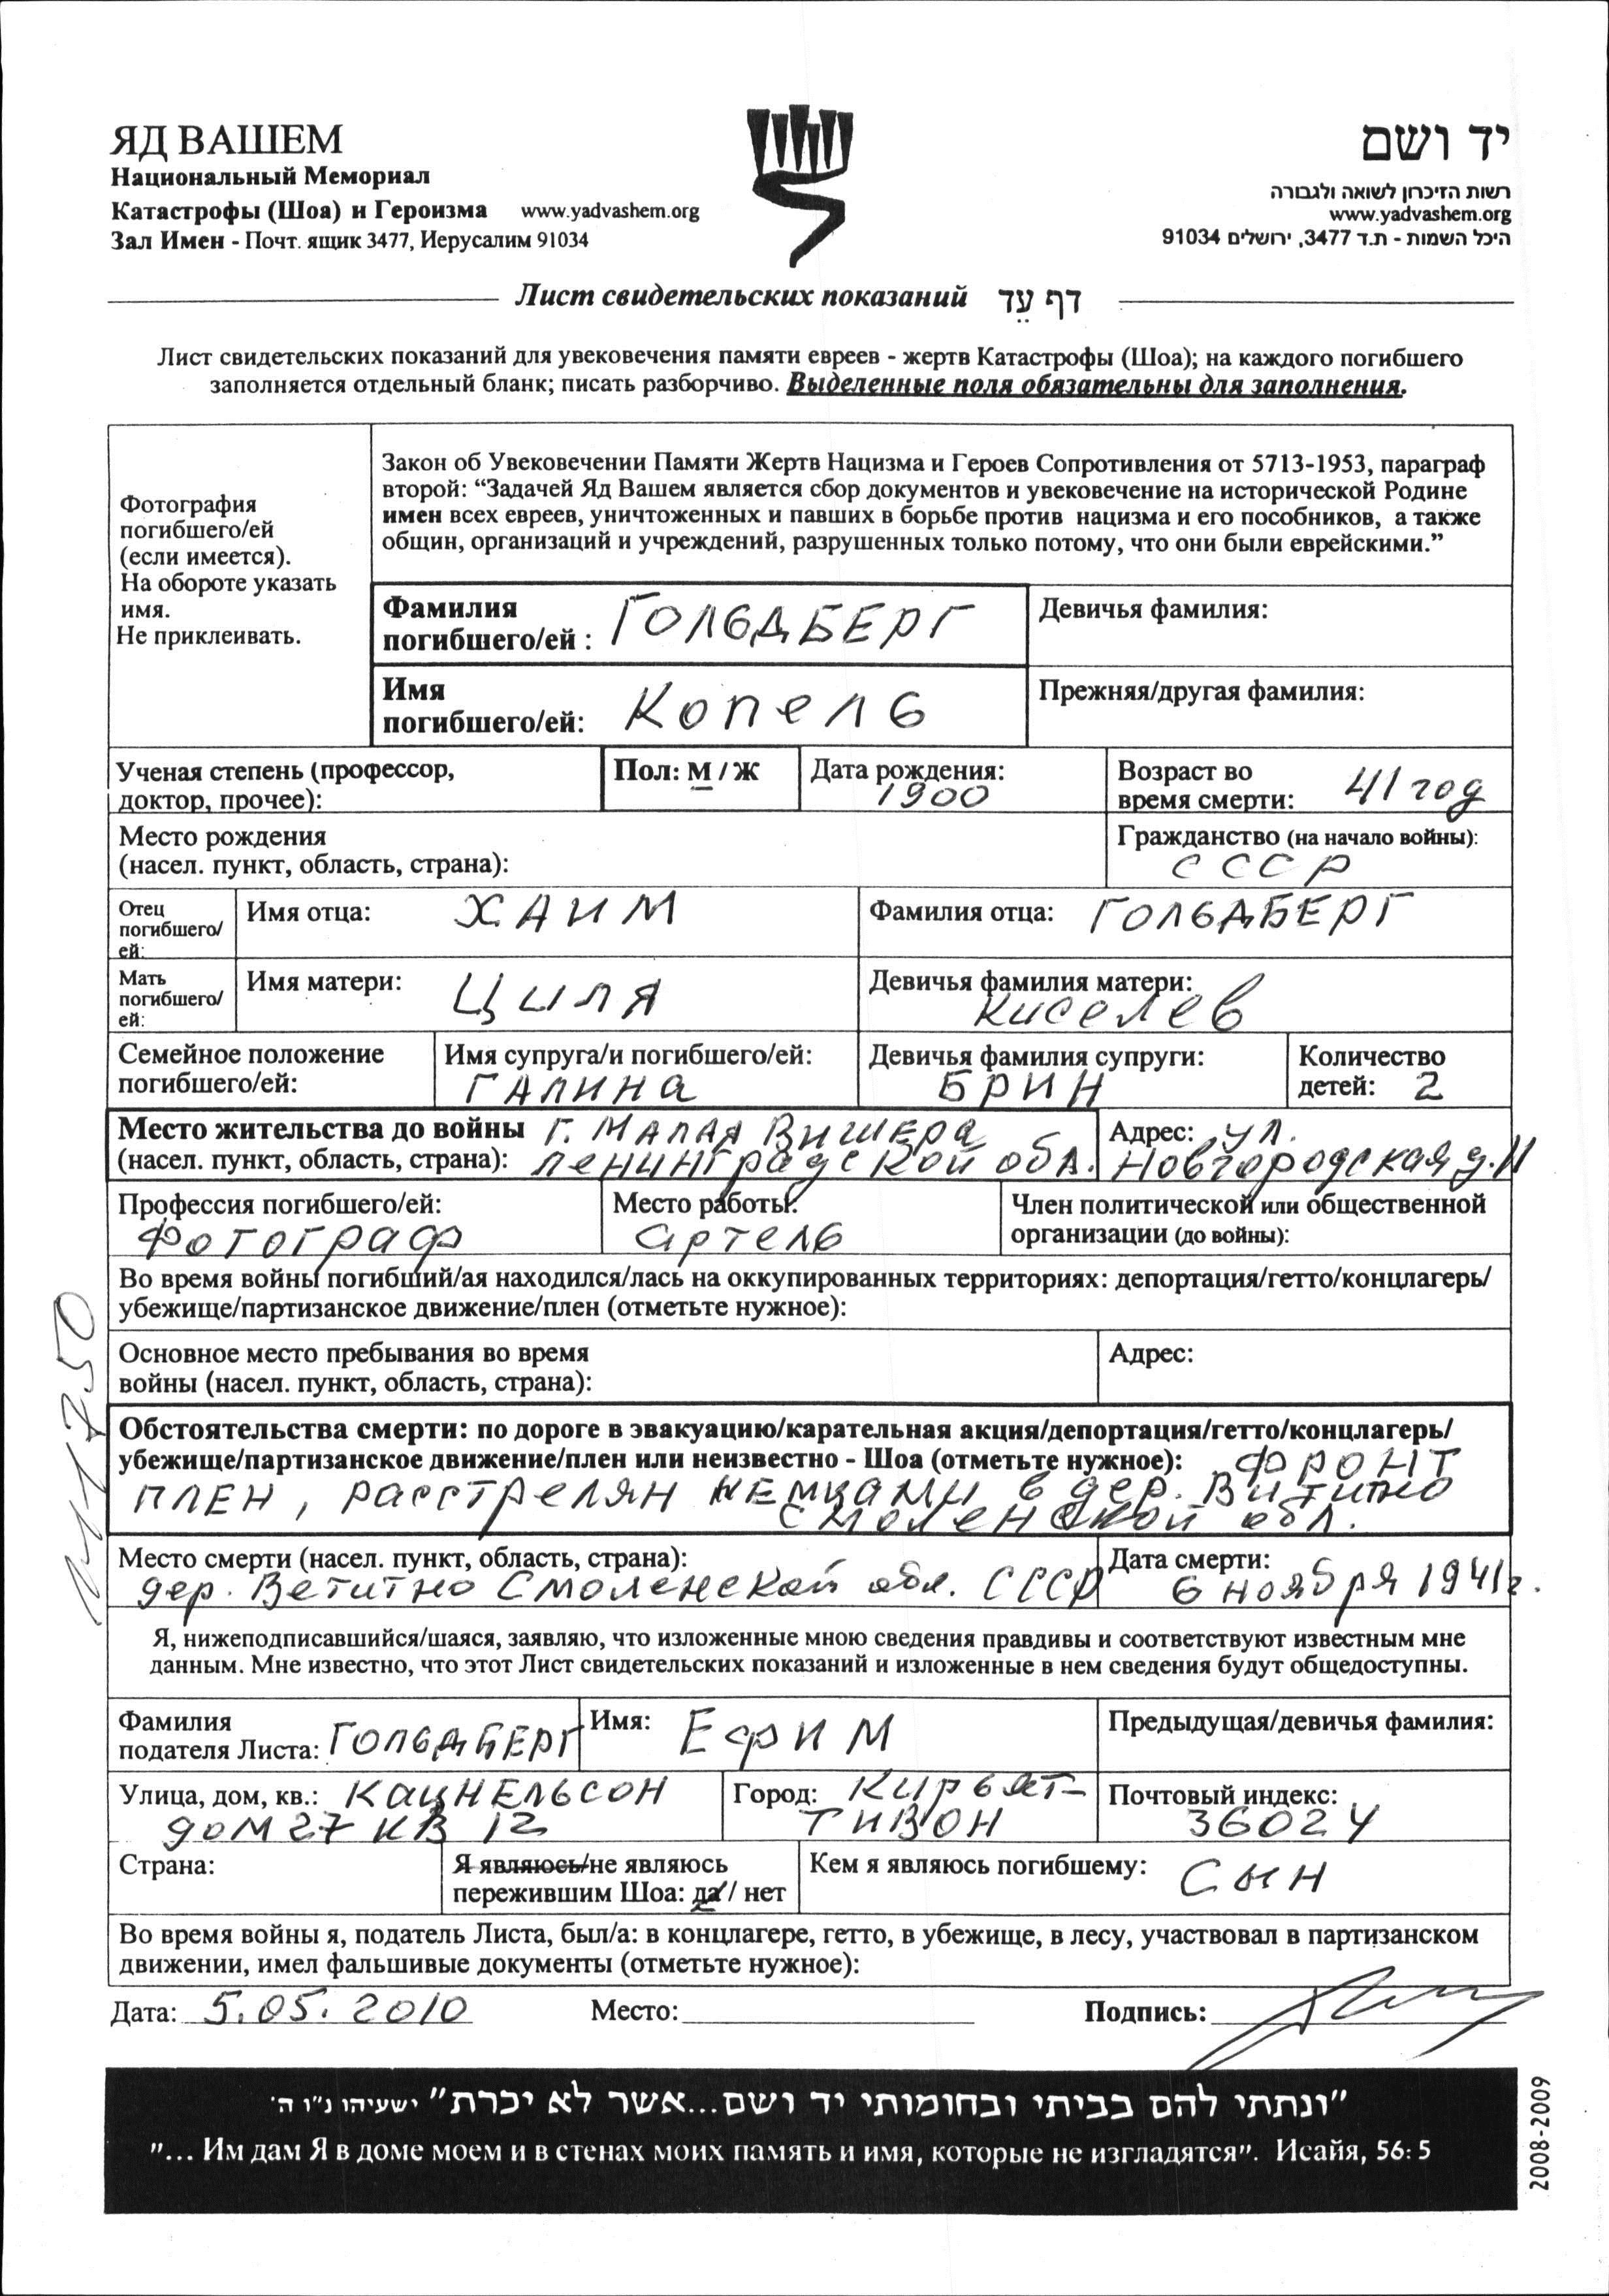 ЯД ВАШЕМ
Национальный Мемориал
Катастрофы (Шоа) и Героизма www.yadvashem.org
Зал Имен - Почт. ящик 3477, Иерусалим 91034
יד ושם
רשות הזיכרון לשואה ולגבורה
www.yadvashem.org
היכל השמות - ת.ד 3477, ירושלים 91034
Лист свидетельских показаний דף עֵד
Лист свидетельских показаний для увековечения памяти евреев - жертв Катастрофы (Шоа); на каждого погибшего
заполняется отдельный бланк; писать разборчиво. Выделенные поля обязательны для заполнения.
Фотография
погибшего/ей
(если имеется).
На обороте указать
имя.
Не приклеивать.
Закон об Увековечении Памяти Жертв Нацизма и Героев Сопротивления от 5713-1953, параграф
второй: “Задачей Яд Вашем является сбор документов и увековечение на исторической Родине
имен всех евреев, уничтоженных и павших в борьбе против нацизма и его пособников, а также
общин, организаций и учреждений, разрушенных только потому, что они были еврейскими.”
Фамилия
погибшего/ей : ГОЛЬДБЕРГ
Девичья фамилия:
Имя
погибшего/ей: Копель
Прежняя/другая фамилия:
Ученая степень (профессор,
доктор, прочее):
Пол: М / Ж
Дата рождения:
1900
Возраст во
время смерти: 41 год
Место рождения
(насел. пункт, область, страна):
Гражданство (на начало войны):
СССР
Отец
погибшего/
ей:
Имя отца: ХАИМ
Фамилия отца: ГОЛЬДБЕРГ
Мать
погибшего/
ей:
Имя матери: Циля
Девичья фамилия матери:
Киселев
Семейное положение
погибшего/ей:
Имя супруга/и погибшего/ей:
ГАЛИНА
Девичья фамилия супруги:
БРИН
Количество
детей: 2
Место жительства до войны г. МАЛАЯ ВИШЕРА
(насел. пункт, область, страна): ЛЕНИНГРАДСКОЙ обл.
Адрес: ул.
Новгородская д. 11
Профессия погибшего/ей:
Фотограф
Место работы:
Артель
Член политической или общественной
организации (до войны):
Во время войны погибший/ая находился/лась на оккупированных территориях: депортация/гетто/концлагерь/
убежище/партизанское движение/плен (отметьте нужное):
Основное место пребывания во время
войны (насел. пункт, область, страна):
Адрес:
Обстоятельства смерти: по дороге в эвакуацию/карательная акция/депортация/гетто/концлагерь/
убежище/партизанское движение/плен или неизвестно - Шоа (отметьте нужное): ФРОНТ
ПЛЕН, РАССТРЕЛЯН НЕМЦАМИ в дер. Витипно
СМОЛЕНСКОЙ обл.
Место смерти (насел. пункт, область, страна):
дер. Ветитно Смоленской обл. СССР
Дата смерти:
6 ноября 1941г.
Я, нижеподписавшийся/шаяся, заявляю, что изложенные мною сведения правдивы и соответствуют известным мне
данным. Мне известно, что этот Лист свидетельских показаний и изложенные в нем сведения будут общедоступны.
Фамилия
подателя Листа: ГОЛЬДБЕРГ
Имя: ЕФИМ
Предыдущая/девичья фамилия:
Улица, дом, кв.: КАЦНЕЛЬСОН
дом 27 КВ 12
Город: Кирьят-
ТИВОН
Почтовый индекс:
36024
Страна:
Я являюсь/не являюсь
пережившим Шоа: да / нет
Кем я являюсь погибшему: СЫН
Во время войны я, податель Листа, был/а: в концлагере, гетто, в убежище, в лесу, участвовал в партизанском
движении, имел фальшивые документы (отметьте нужное):
Дата: 5.05.2010 Место: Подпись:
"ונתתי להם בביתי ובחומותי יד ושם...אשר לא יכרת" ישעיהו נ"ו ה'
"... Им дам Я в доме моем и в стенах моих память и имя, которые не изгладятся". Исайя, 56: 5
2008-2009